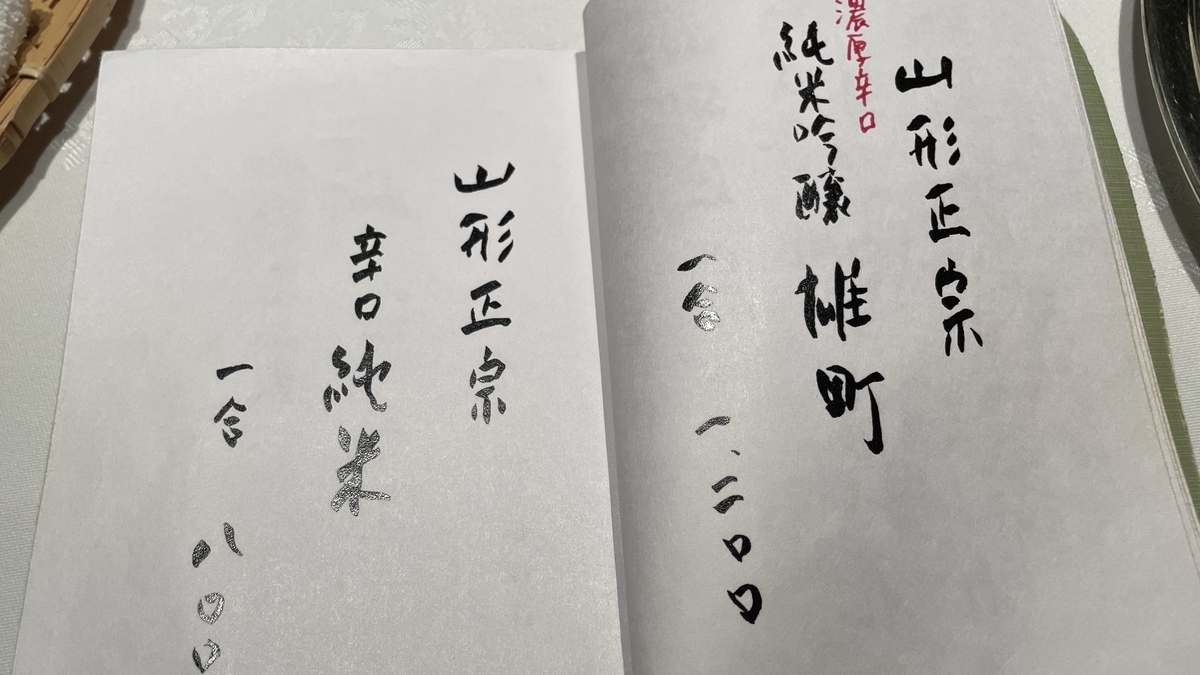 山形正宗
濃厚辛口
純米吟醸 雄町
一合 一、二〇〇
山形正宗
辛口 純米
一合 八〇〇